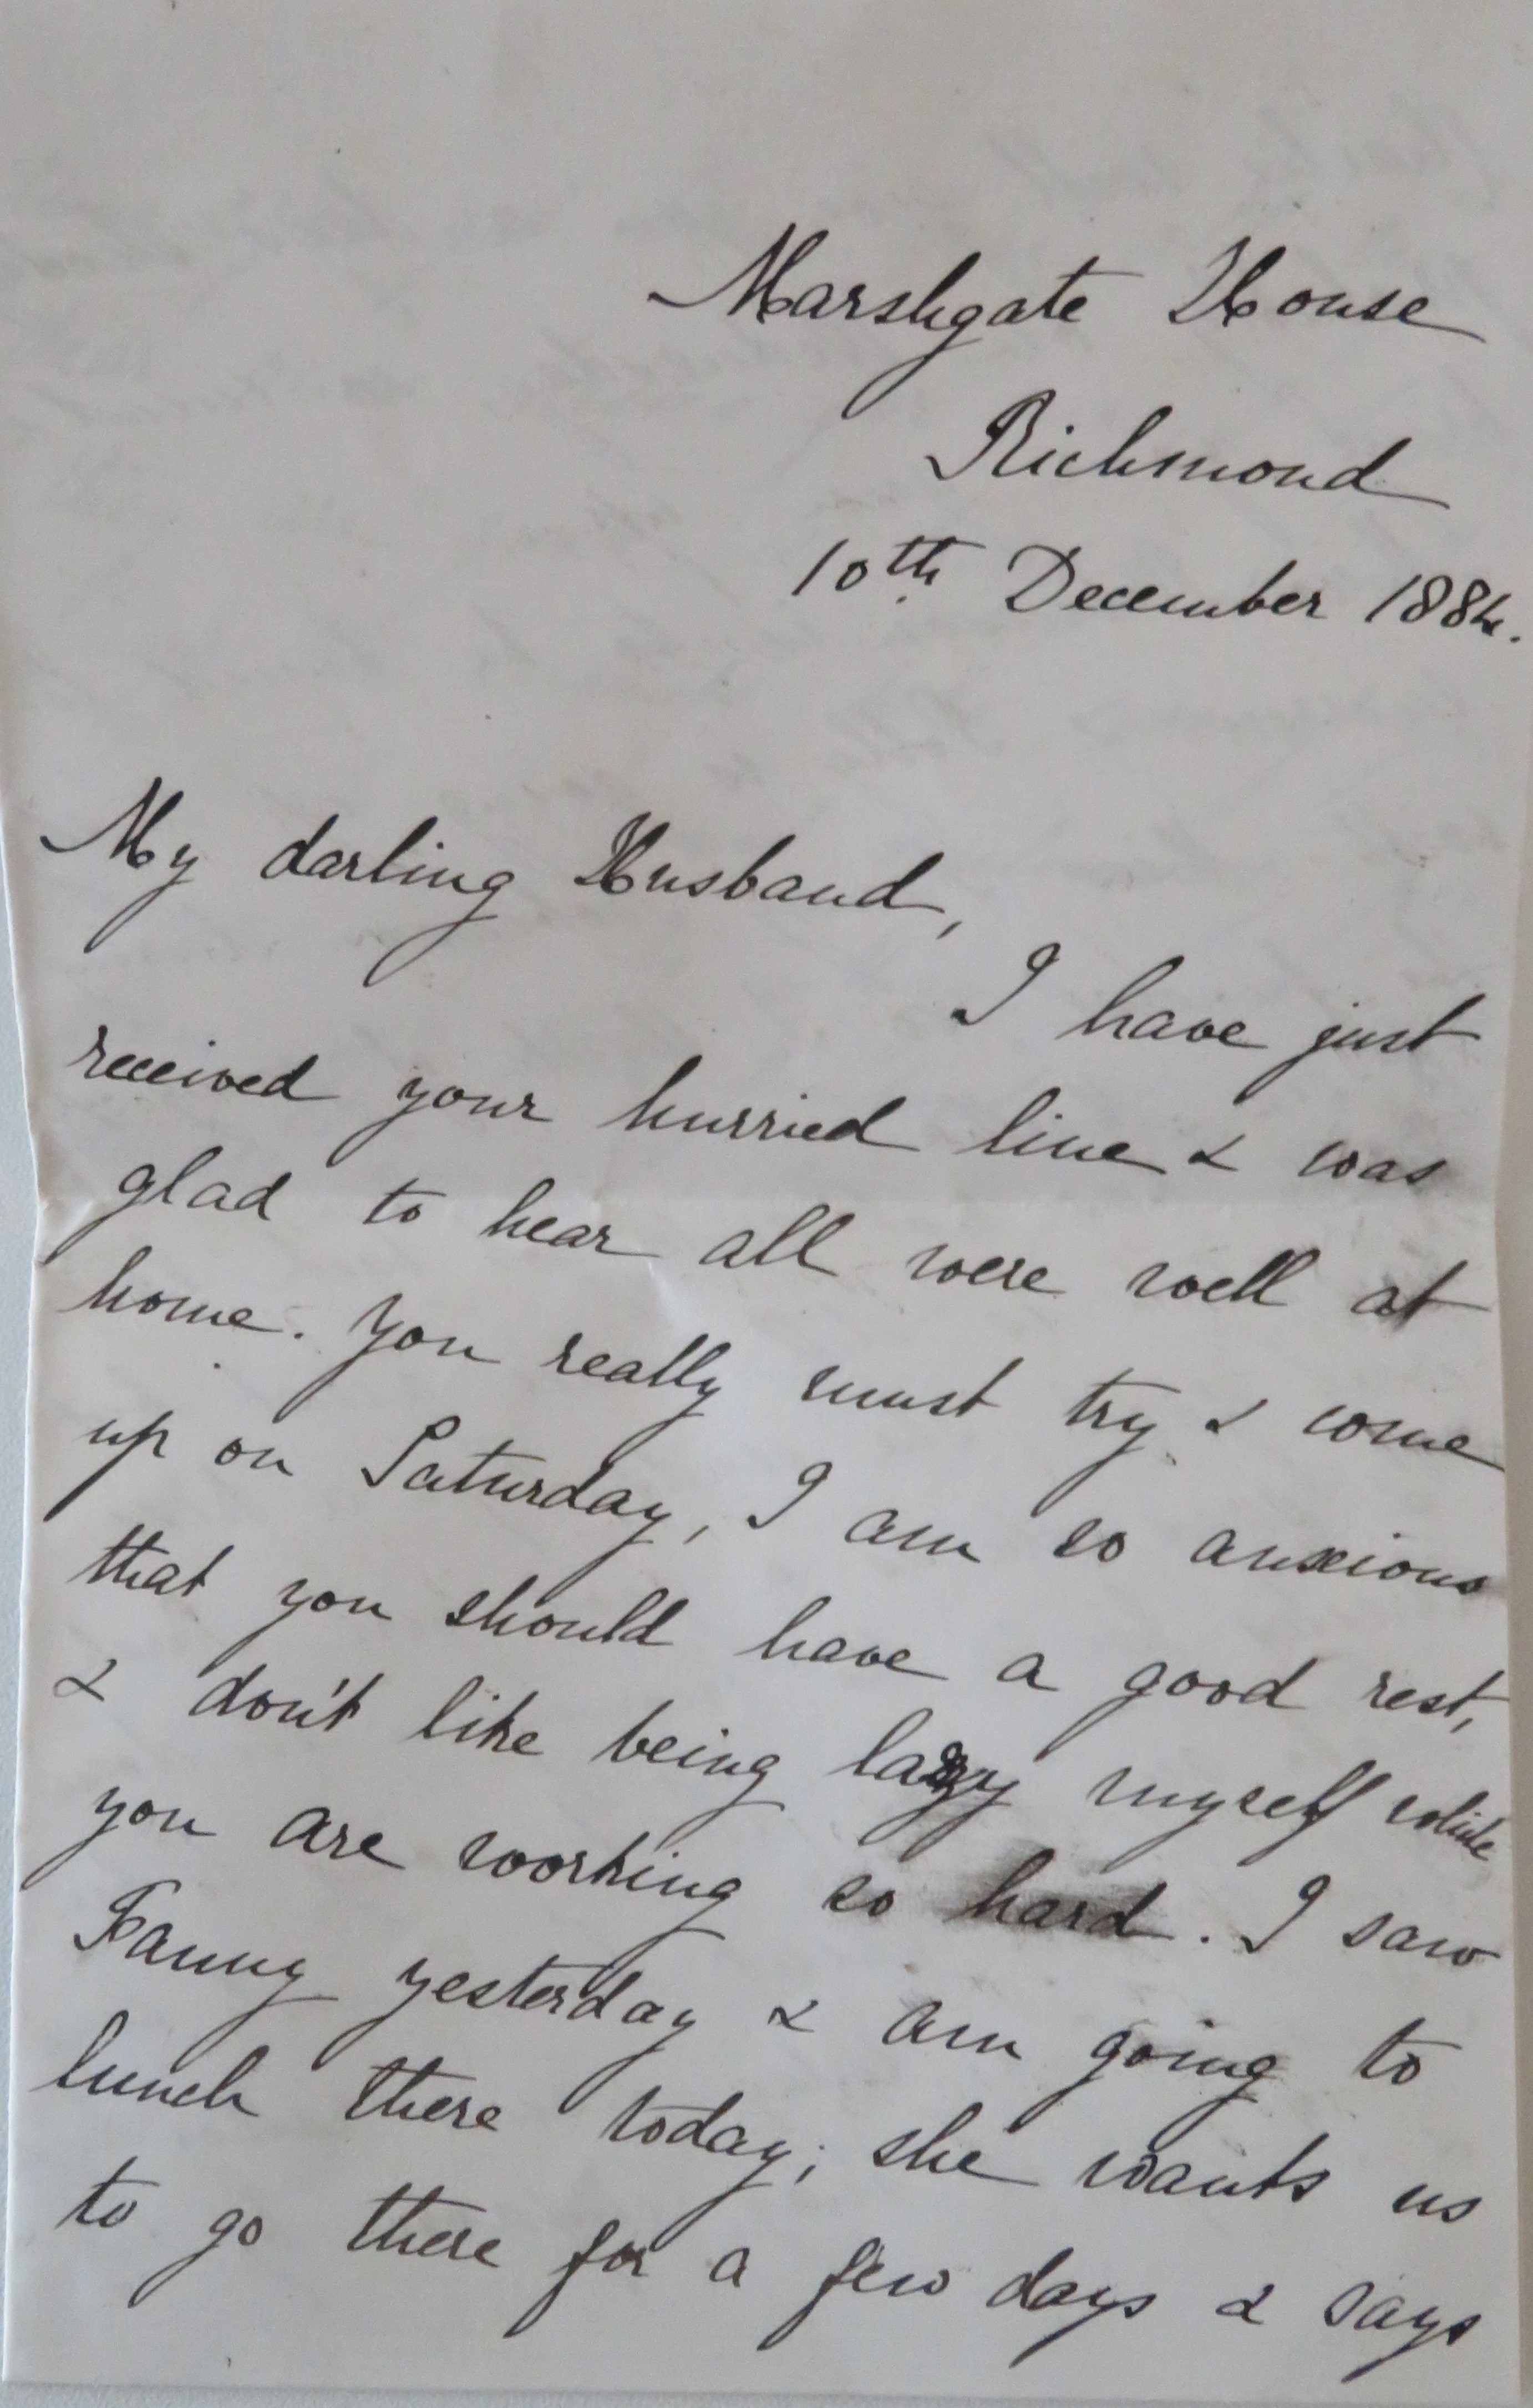 Marshgate House
Richmond
10th December 1884.
My darling Husband,
I have just
received your hurried line & was
glad to hear all were well at
home. You really must try & come
up on Saturday, I am so anxious
that you should have a good rest,
& don't like being lazy myself while
you are working so hard. I saw
Fanny yesterday & am going to
lunch there today; she wants us
to go there for a few days & says